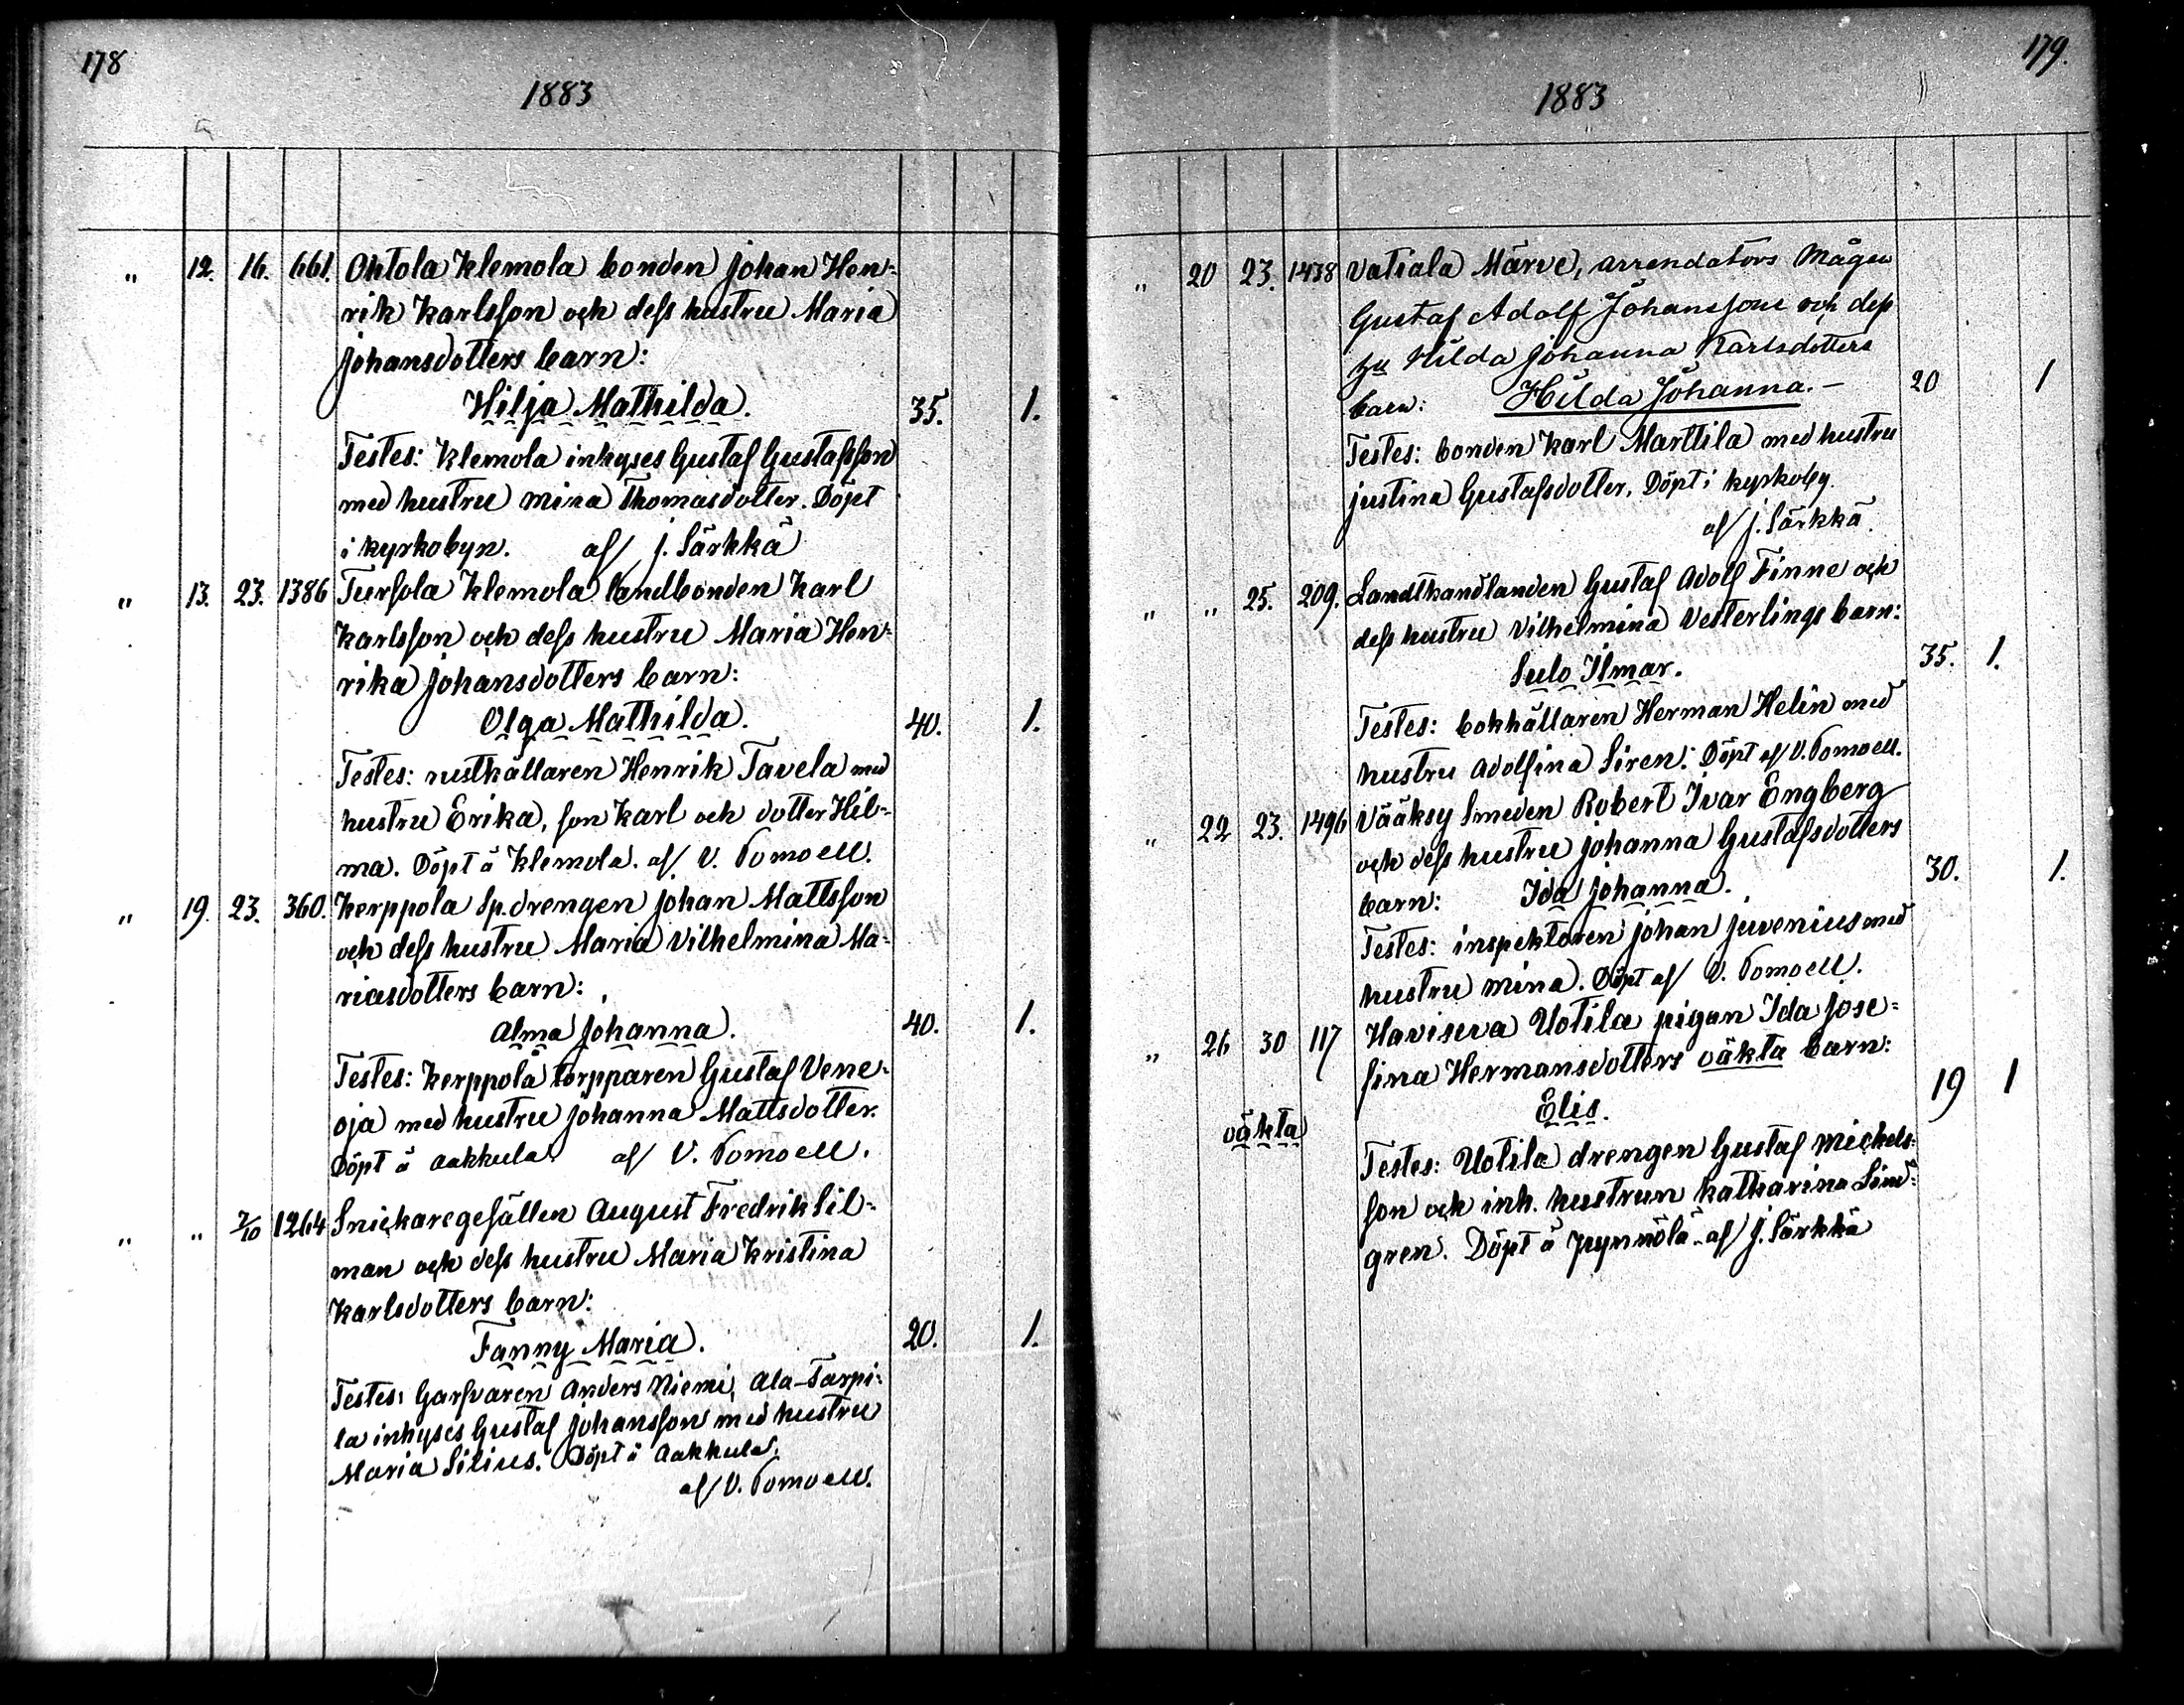 178
1883
" 12. 16. 661. Ohtola Klemola bonden Johan Hen-
rik Karlsson och dess hustru Maria
Johansdotters barn:
Hilja Mathilda. 35. 1.
Testes: Klemola inhyses Gustaf Gustafsson
med hustru Mina Thomasdotter. Döpt
i kyrkobyn. af J. Särkkä
" 13. 23. 1386 Tursola Klemola landbonden Karl
Karlsson och dess hustru Maria Hen-
rika Johansdotters barn:
Olga Mathilda. 40. 1.
Testes: rusthållaren Henrik Tavela med
hustru Erika, son Karl och dotter Hil-
ma. Döpt å Klemola. af V. Pomoell.
" 19. 23. 360. Kerppola Sp.drengen Johan Mattsson
och dess hustru Maria Vilhelmina Ma-
riasdotters barn:
Alma Johanna. 40. 1.
Testes: Kerppola torpparen Gustaf Vene-
oja med hustru Johanna Mattsdotter.
Döpt å Aakkula. af V. Pomoell.
" " 7/10 1264 Snickaregesällen August Fredrik Sil-
man och dess hustru Maria Kristina
Karlsdotters barn:
Fanny Maria. 20. 1.
Testes: Garfvaren Anders Niemi, Ala-Tarpi-
la inhyses Gustaf Johansson med hustru
Maria Silius. Döpt å Aakkula.
af V. Pomoell.
179.
1883
" 20 23. 1438 Vatiala Märve, arrendators Mågen
Gustaf Adolf Johansson och dess
hu Hilda Johanna Karlsdotters
barn: Hilda Johanna.- 20 1
Testes: bonden Karl Marttila med hustru
Justina Gustafsdotter. Döpt i kyrkoby.
af J. Särkkä.
" " 25. 209. Landthandlanden Gustaf Adolf Finne och
dess hustru Vilhelmina Vesterlings barn:
Sulo Ilmar. 35. 1.
Testes: bokhållaren Herman Helin med
hustru Adolfina Siren. Döpt af V. Pomoell.
" 22 23. 1496 Vääksy Smeden Robert Ivar Engberg
och dess hustru Johanna Gustafsdotters
barn: Ida Johanna. 30. 1.
Testes: inspektoren Johan Juvenius med
hustru Mina. Döpt af V. Pomoell.
" 26 30 117 Havisuva Uotila pigan Ida Jose-
fina Hermansdotters oäkta barn:
Elis. 19 1
oäkta
Testes: Uotila drengen Gustaf Mickels-
son och inh. hustrun Katharina Lind-
gren. Döpt å Pynnölä af J. Särkkä